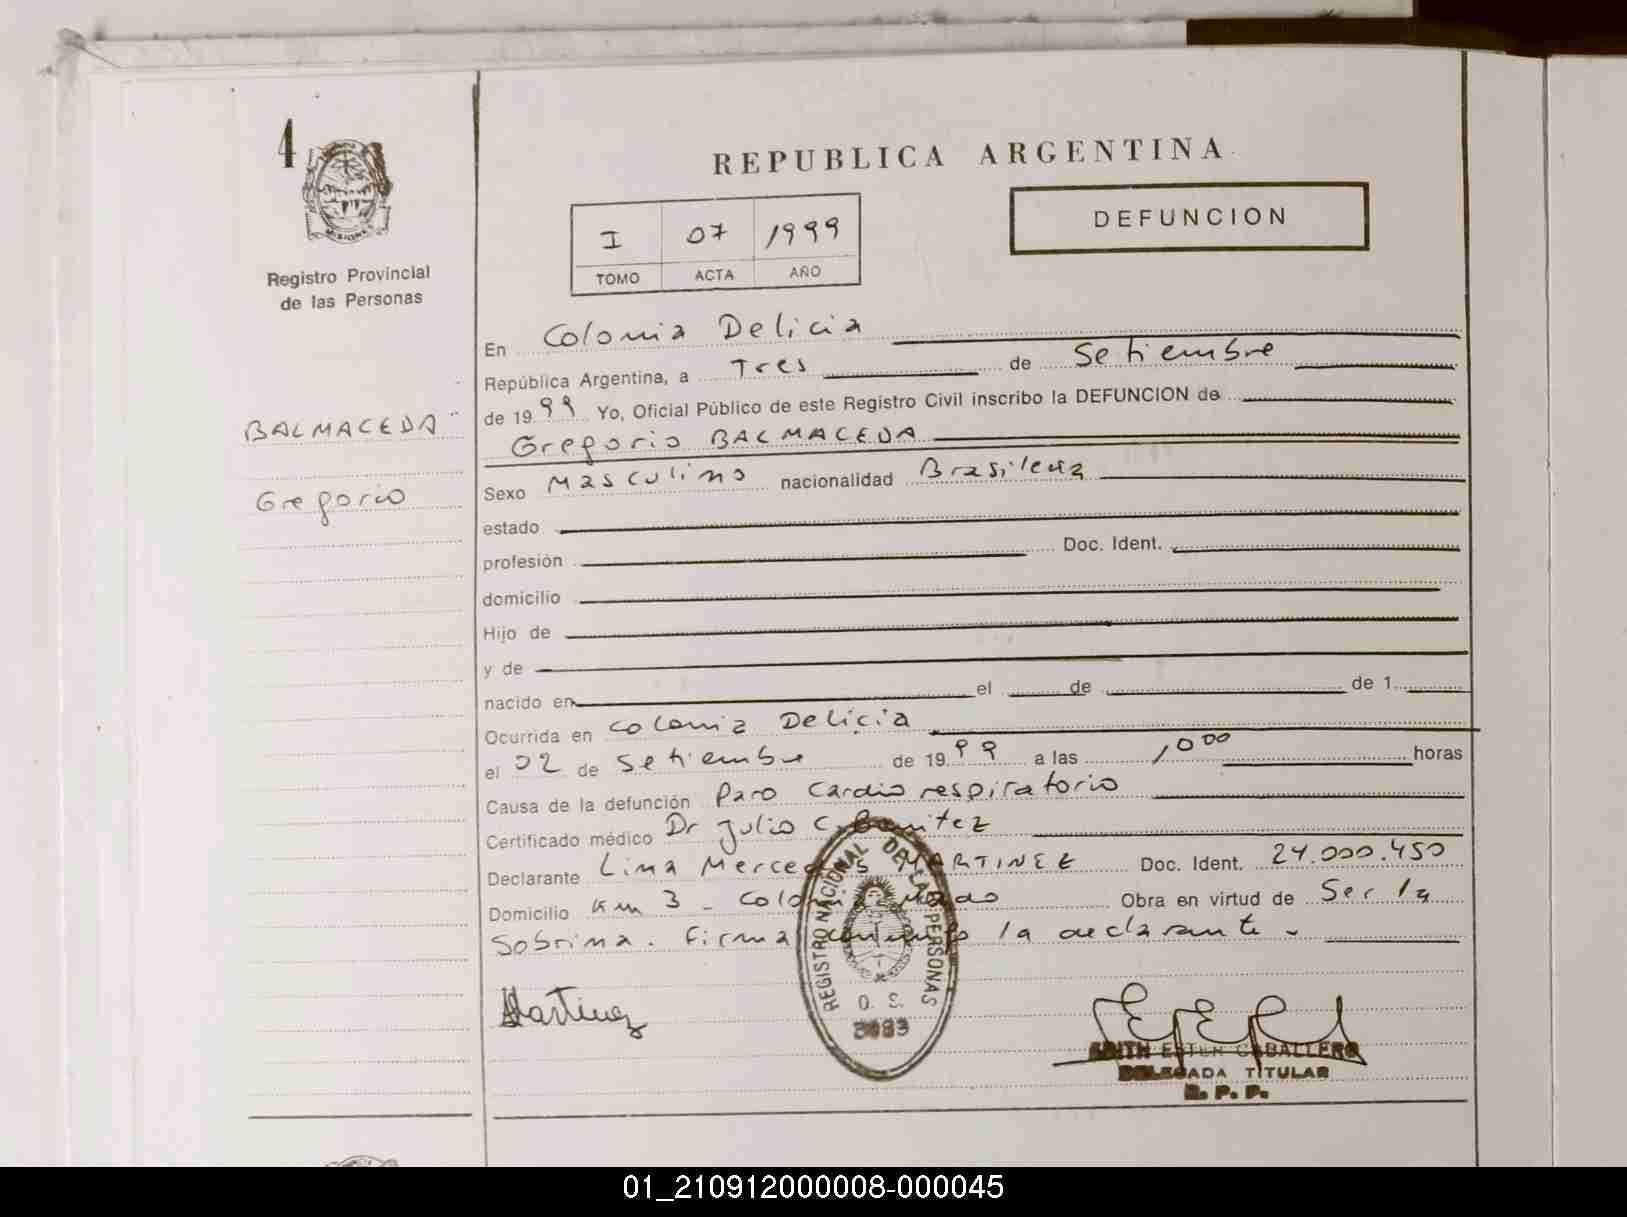 4
MISIONES
Registro Provincial
de las Personas
BALMACEDA
Gregorio
REPUBLICA ARGENTINA
I 07 1999
TOMO ACTA AÑO
DEFUNCION
En Colonia Delicia
República Argentina, a Tres de Setiembre
de 1999 Yo, Oficial Público de este Registro Civil inscribo la DEFUNCION de
Gregorio BALMACEDA
Sexo Masculino nacionalidad Brasilera
estado
profesión Doc. Ident.
domicilio
Hijo de
y de
nacido en el de de 1
Ocurrida en Colonia Delicia
el 02 de Setiembre de 1999 a las 1,000 horas
Causa de la defunción Paro Cardio respiratorio
Certificado médico Dr Julio C. Benitez
Declarante Lina Mercedes MARTINEZ Doc. Ident. 24.000.450
Domicilio Km 3 - Colonia Obra en virtud de Ser la
Sobrina. Firma conmigo la declarante -
REGISTRO NACIONAL DE LAS PERSONAS
O. S.
3083
Martinez
EDITH ESTER CABALLERO
DELEGADA TITULAR
R. P. P.
01_210912000008-000045